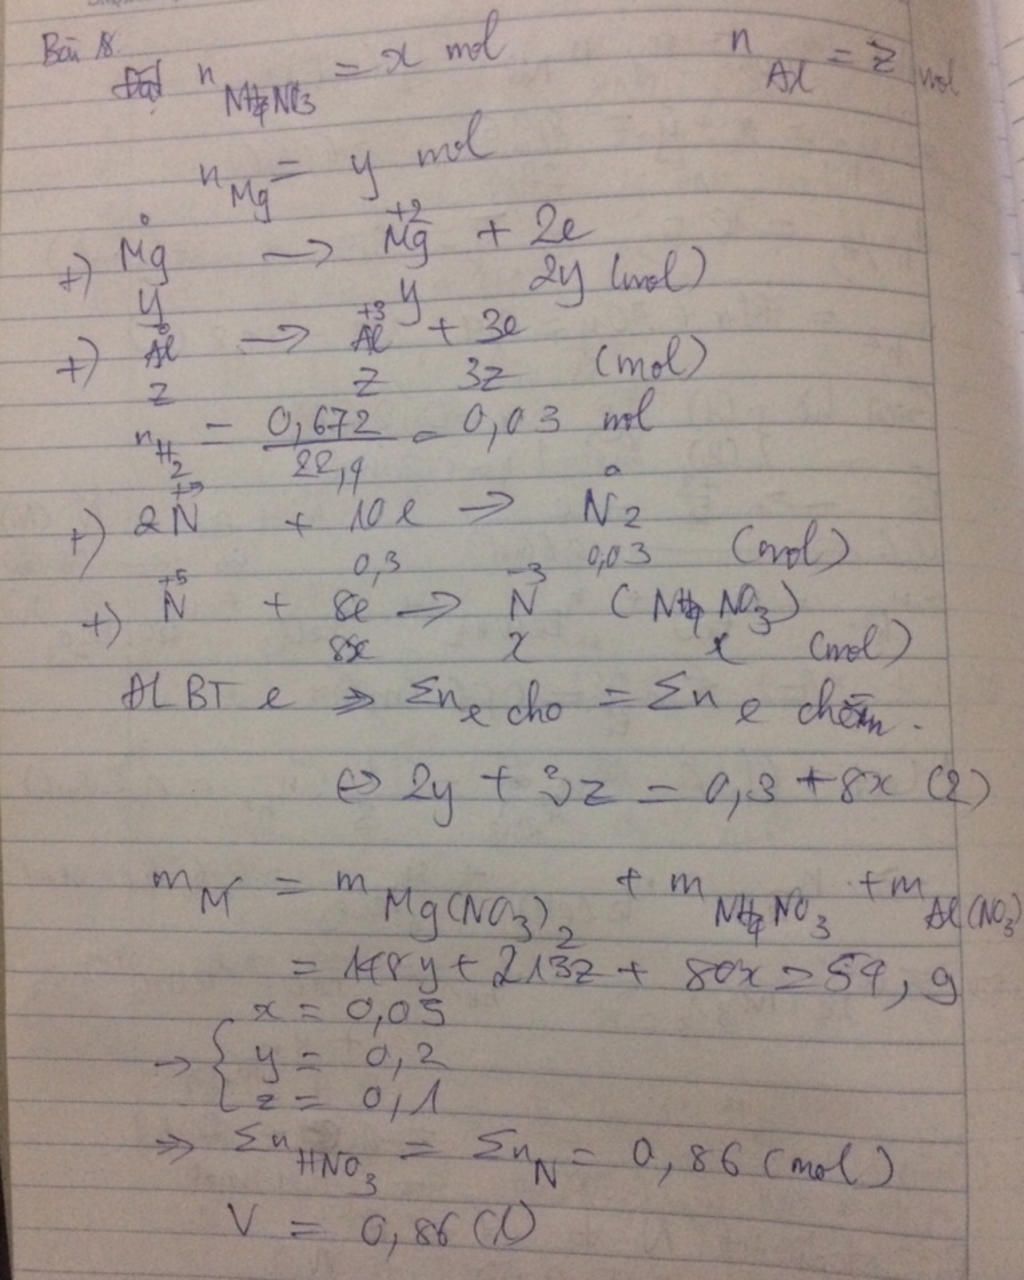 Bài 18.
n NH4NO3 = x mol n Al = z mol
n Mg = y mol
+) Mg⁰ → Mg⁺² + 2e
y y 2y (mol)
+) Al⁰ → Al⁺³ + 3e
z z 3z (mol)
n H2 = 0,672/22,4 = 0,03 mol
+) 2N⁺⁵ + 10e → N⁰2
0,3 0,03 (mol)
+) N⁺⁵ + 8e → N⁻³ (NH4NO3)
8x x x (mol)
ĐLBT e ⇒ Σn e cho = Σn e
⇔ 2y + 3z = 0,3 + 8x (2)
m M = m Mg(NO3)2 + m NH4NO3 + m Al(NO3)
= 148y + 213z + 80x = 54, 9
x = 0,05
→ { y = 0,2
z = 0,1
⇒ Σn HNO3 = Σn N = 0,86 (mol)
V = 0,86 (l)